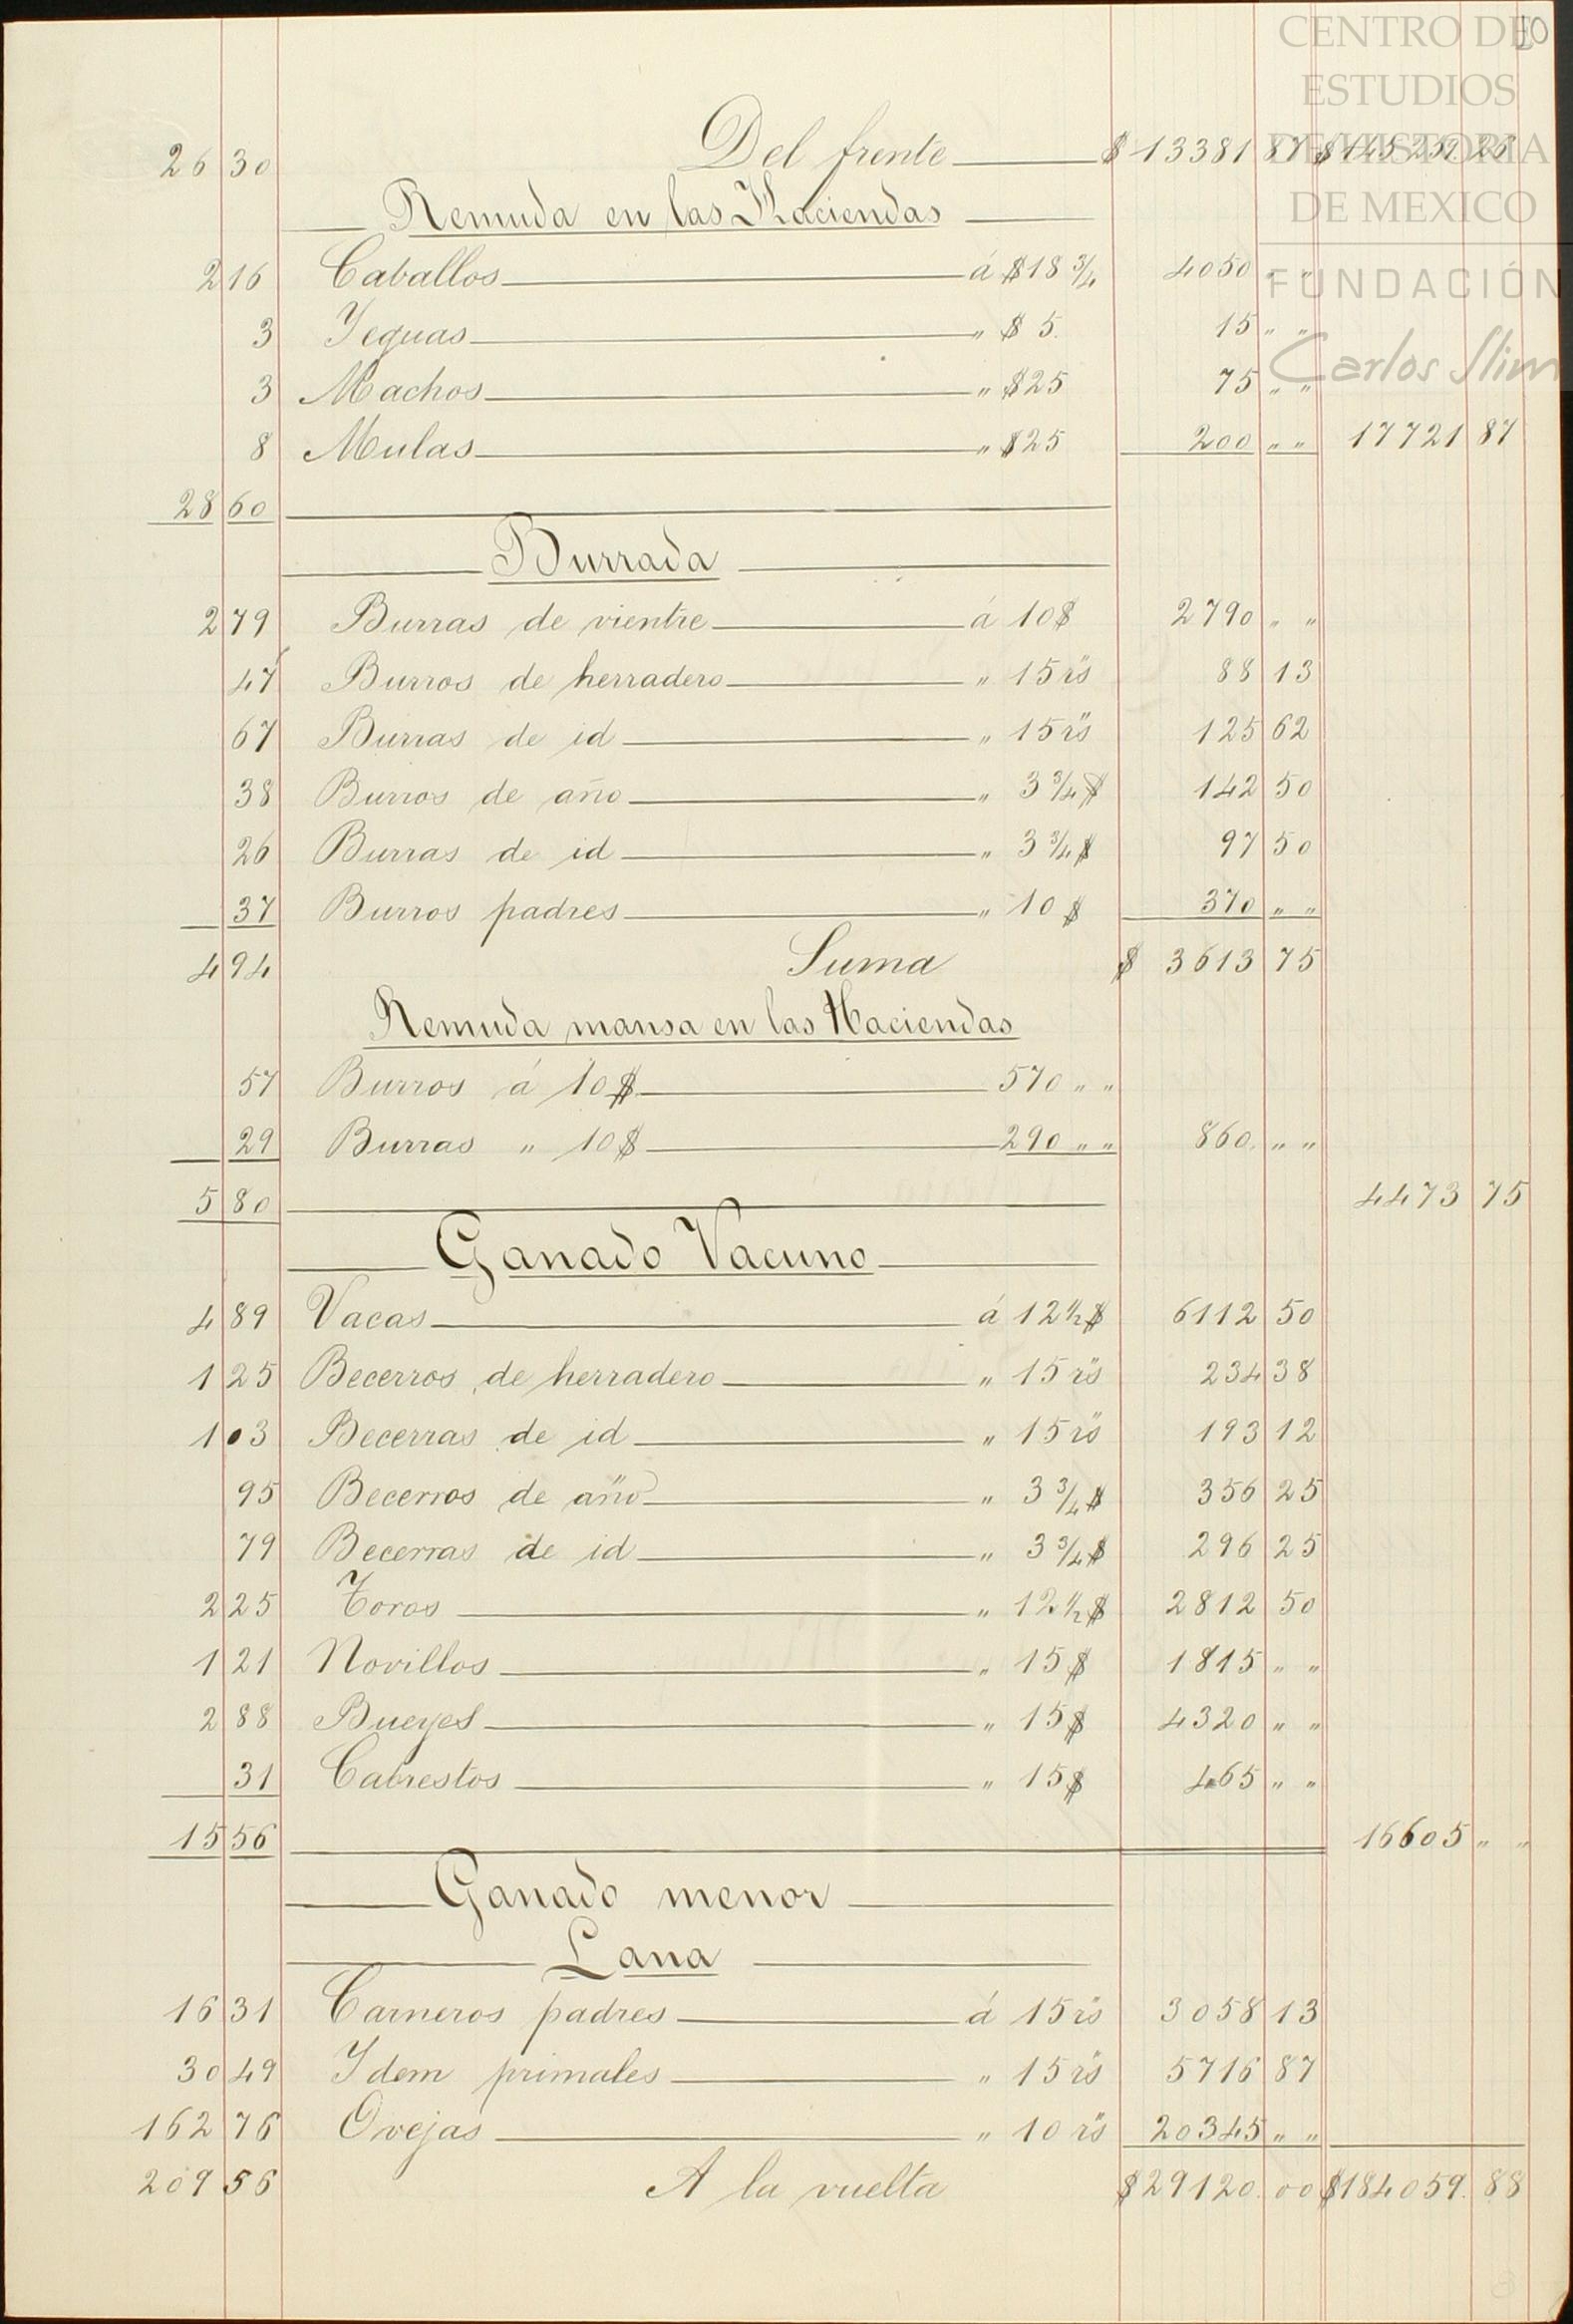 CENTRO DE
ESTUDIOS
DE HISTORIA
DE MEXICO
FUNDACIÓN
Carlos Slim
10
2630 Del frente $13381 87 $145259 26
Remuda en las Haciendas
216 Caballos á $18 3/4 4050 " "
3 Yeguas " $5. 15 " "
3 Machos " $25 75 " "
8 Mulas " $25 200 " " 17721 87
2860
Burrada
279 Burras de vientre á 10$ 2790 " "
47 Burros de herradero " 15 rs 88 13
67 Burras de id " 15 rs 125 62
38 Burros de año " 3 3/4 $ 142 50
26 Burras de id " 3 3/4 $ 97 50
37 Burros padres " 10 $ 370 " "
494 Suma $ 3613 75
Remuda mansa en las Haciendas
57 Burros á 10$ 570 " "
29 Burras " 10$ 290 " " 860. " "
580 4473 75
Ganado Vacuno
489 Vacas á 12 1/2 $ 6112 50
125 Becerros de herradero " 15 rs 234 38
103 Becerras de id " 15 rs 193 12
95 Becerros de año " 3 3/4 $ 356 25
79 Becerras de id " 3 3/4 $ 296 25
225 Toros " 12 1/2 $ 2812 50
121 Novillos " 15$ 1815 " "
288 Bueyes " 15$ 4320 " "
31 Cabrestos " 15$ 465 " "
1556 16605 " "
Ganado menor
Lana
1631 Carneros padres á 15 rs 3058 13
3049 Idem primales " 15 rs 5716 87
16276 Ovejas " 10 rs 20345 " "
20956 A la vuelta $29120. 00 $184059. 88